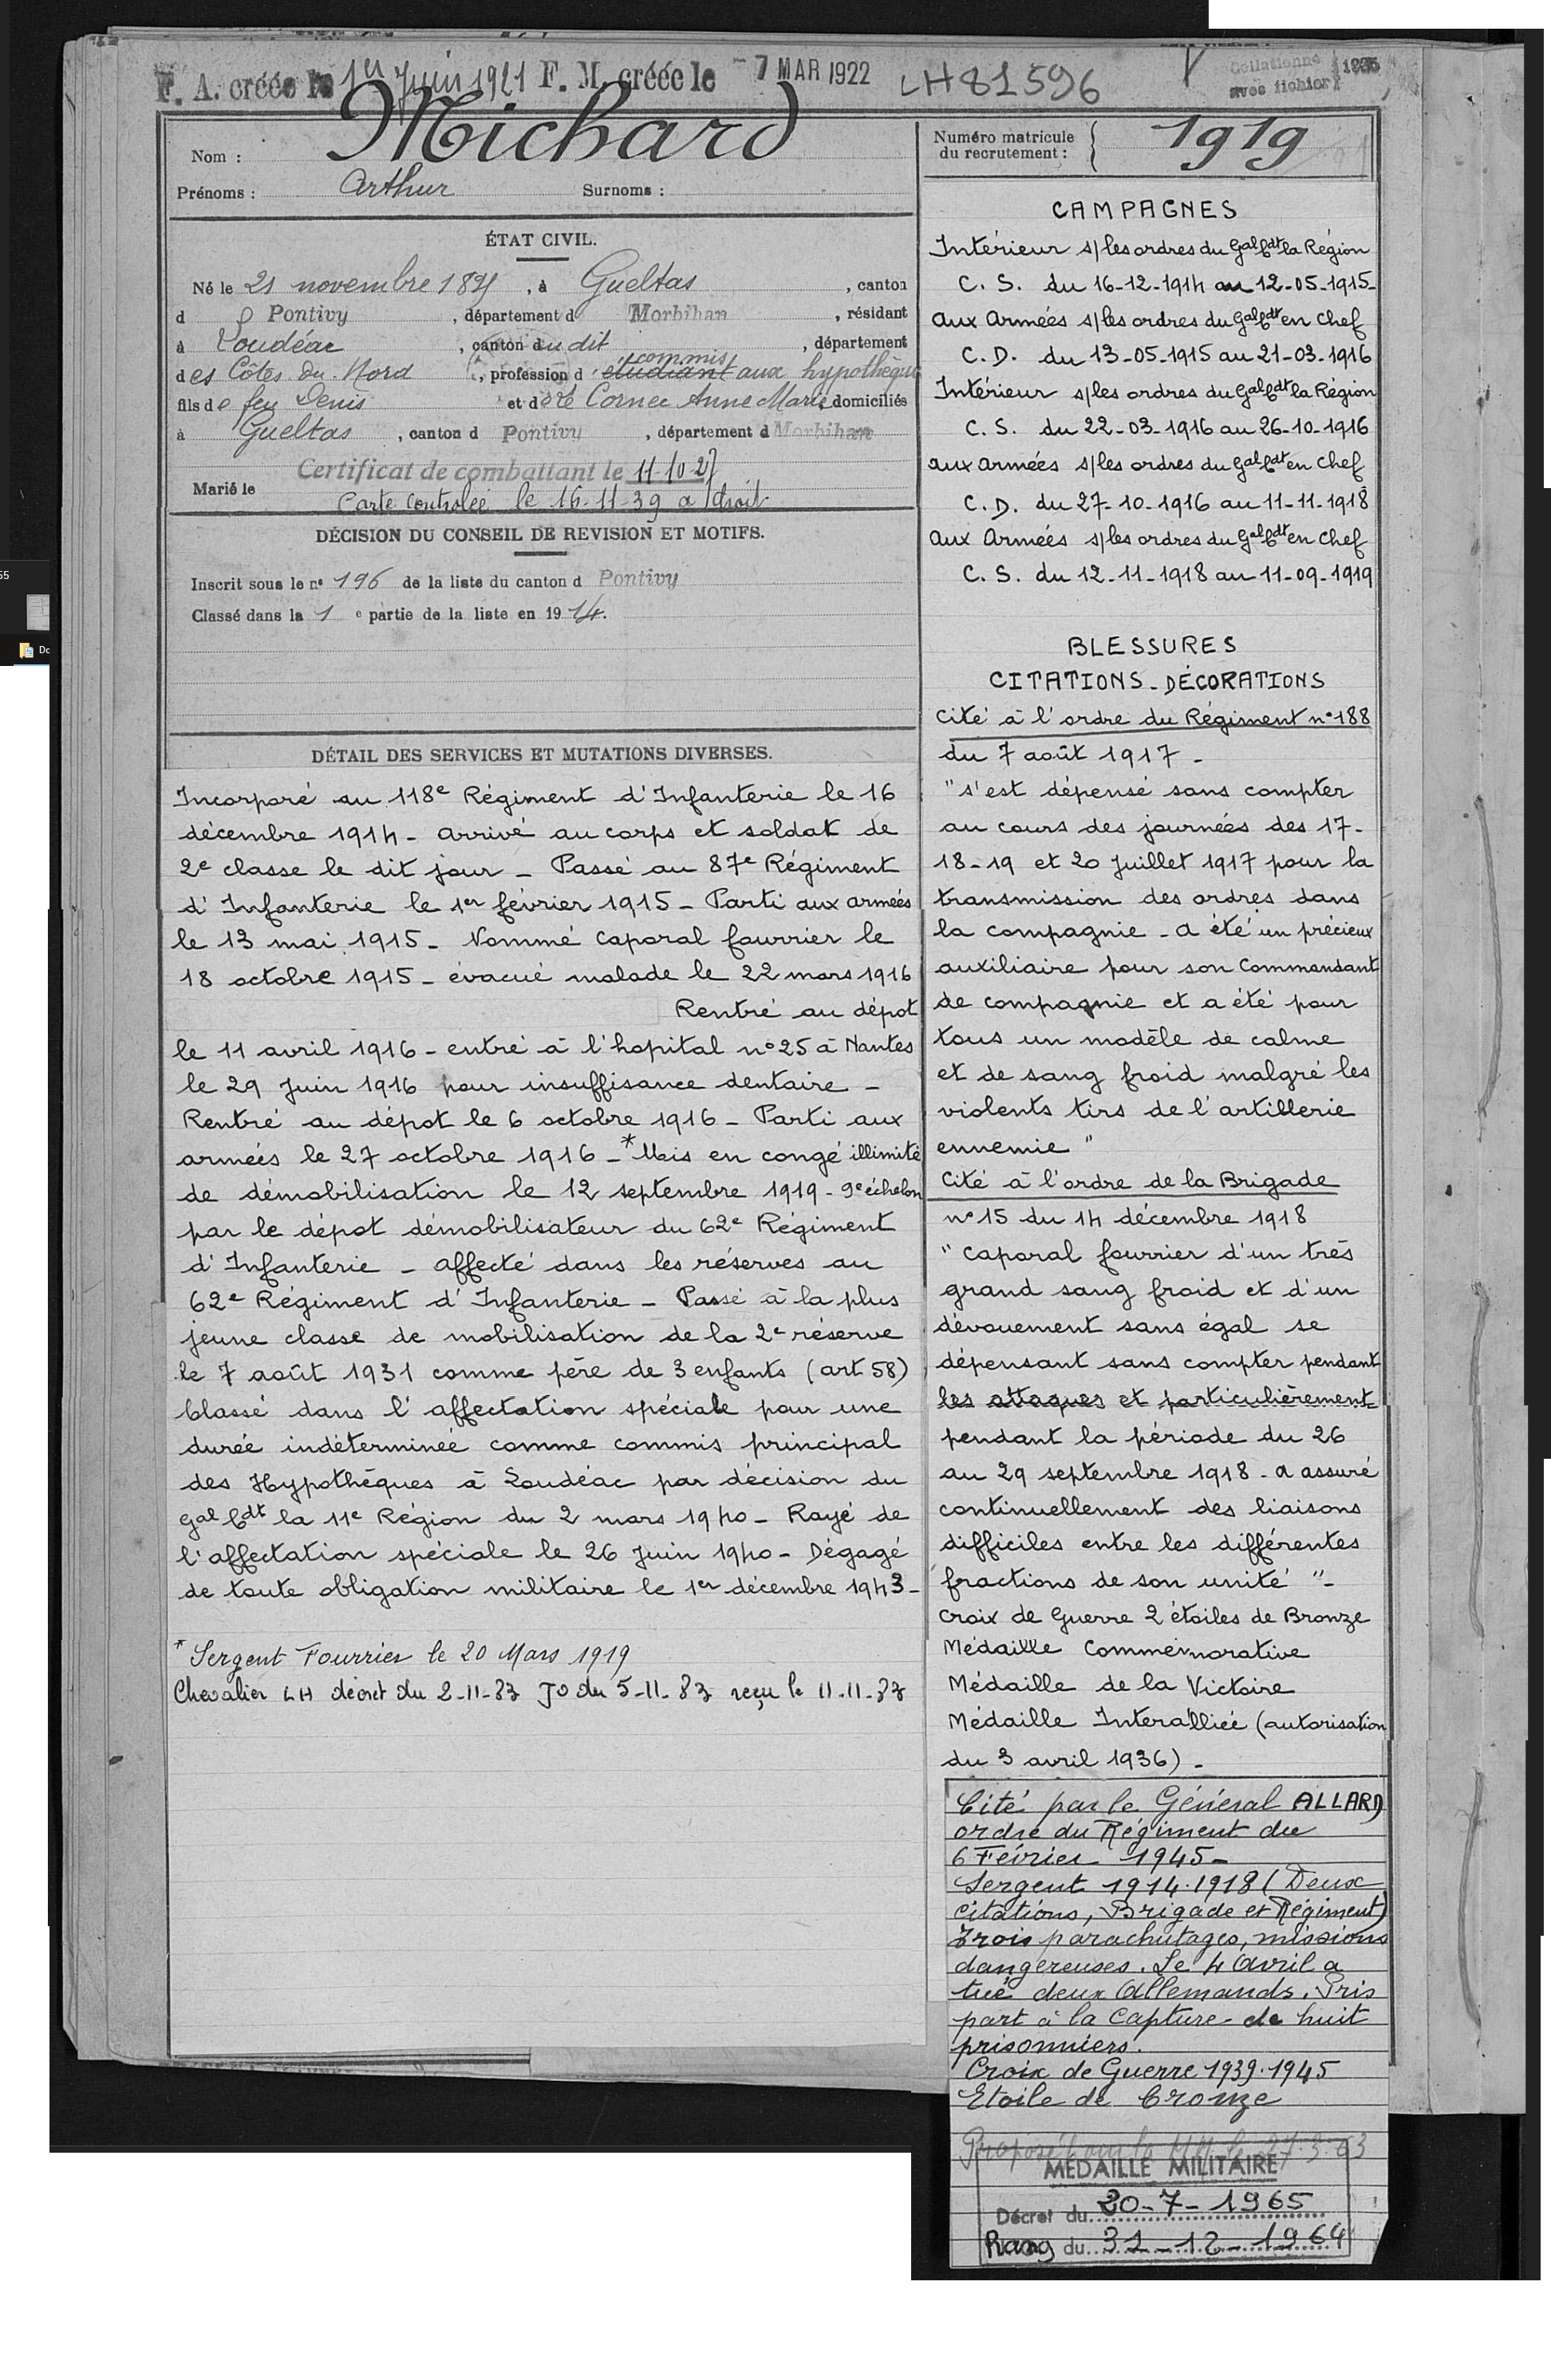 F. A. créée le 1er Juin 1921 F. M. créée le - 7 MAR 1922 LH 81596
Collationné
avec fichier
Nom : Michard
Prénoms : Arthur Surnoms :
Numéro matricule
du recrutement : 1919
ÉTAT CIVIL.
Né le 21 novembre , à Gueltas , canton
d Pontivy , département d Morbihan , résidant
à Loudéac , canton dudit , département
des Côtes du Nord , profession d étudiant commis aux hypothèques
fils de feu Denis et de Cornec Anne Marie domiciliés
à Gueltas , canton d Pontivy , département d Morbihan
Certificat de combattant le 11-10-27
Marié le
Carte controlée le 16-11-39 a droit
DÉCISION DU CONSEIL DE REVISION ET MOTIFS.
Inscrit sous le n° 196 de la liste du canton d Pontivy
Classé dans la 1 e partie de la liste en 1914.
DÉTAIL DES SERVICES ET MUTATIONS DIVERSES.
Incorporé au 118e Régiment d'Infanterie le 16
décembre 1914 - arrivé au corps et soldat de
2e classe le dit jour - Passé au 87e Régiment
d'Infanterie le 1er février 1915 - Parti aux armées
le 13 mai 1915 - Nommé caporal fourrier le
18 octobre 1915 - évacué malade le 22 mars 1916
Rentré au dépot
le 11 avril 1916 - entré à l'hopital n°25 à Nantes
le 29 Juin 1916 pour insuffisance dentaire -
Rentré au dépot le 6 octobre 1916 - Parti aux
armées le 27 octobre 1916 - * Mis en congé illimité
de démobilisation le 12 septembre 1919 - 9e échelon
par le dépot démobilisateur du 62e Régiment
d'Infanterie - affecté dans les réserves au
62e Régiment d'Infanterie - Passé à la plus
jeune classe de mobilisation de la 2e réserve
le 7 août 1931 comme père de 3 enfants (art 58)
Classé dans l'affectation spéciale pour une
durée indéterminée comme commis principal
des Hypothèques à Loudéac par décision du
Gal Cdt la 11e Région du 2 mars 1940 - Rayé de
l'affectation spéciale le 26 Juin 1940 - Dégagé
de toute obligation militaire le 1er décembre 1943 -
* Sergent Fourrier le 20 Mars 1919
Chevalier LH décret du 2-11-83 JO du 5-11-83 reçu le 11-11-83
CAMPAGNES
Intérieur s/les ordres du Gal Cdt la Région
C. S. du 16-12-1914 au 12-05-1915-
aux Armées s/les ordres du Gal Cdt en chef
C. D. du 13-05-1915 au 21-03-1916
Intérieur s/les ordres du Gal Cdt la Région
C. S. du 22-03-1916 au 26-10-1916
aux armées s/les ordres du Gal Cdt en chef
C. D. du 27-10-1916 au 11-11-1918
aux Armées s/les ordres du Gal Cdt en chef
C. S. du 12-11-1918 au 11-09-1919
BLESSURES
CITATIONS - DÉCORATIONS
Cité à l'ordre du Régiment n°188
du 7 août 1917 -
"s'est dépensé sans compter
au cours des journées des 17-
18-19 et 20 Juillet 1917 pour la
transmission des ordres dans
la compagnie - a été un précieux
auxiliaire pour son Commandant
de compagnie et a été pour
tous un modèle de calme
et de sang froid malgré les
violents tirs de l'artillerie
ennemie"
Cité à l'ordre de la Brigade
n°15 du 14 décembre 1918
"Caporal fourrier d'un très
grand sang froid et d'un
dévouement sans égal se
dépensant sans compter pendant
les attaques et particulièrement
pendant la période du 26
au 29 septembre 1918 - a assuré
continuellement des liaisons
difficiles entre les différentes
fractions de son unité" -
Croix de Guerre 2 étoiles de Bronze
Médaille Commémorative
Médaille de la Victoire
Médaille Interalliée (autorisation
du 3 avril 1936) -
Cité par le Général ALLARD
ordre du Régiment du
6 Février 1945 -
Sergent 1914.1918 (Deux
citations, Brigade et Régiment)
Trois parachutages, missions
dangereuses. Le 4 Avril a
tué deux Allemands. Pris
part à la Capture de huit
prisonniers.
Croix de Guerre 1939.1945
Etoile de bronze
Proposé pour la MM le 27.3.63
MÉDAILLE MILITAIRE
Décret du 20-7-1965
Rang du 31-12-1964